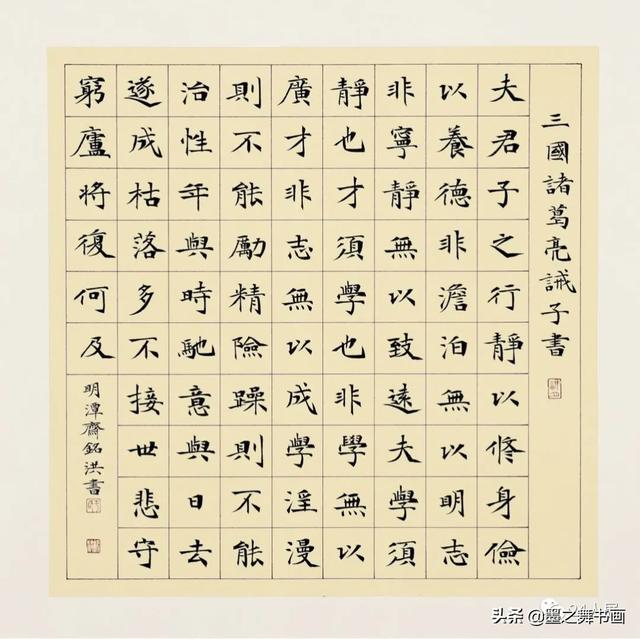 三國諸葛亮誡子書
夫君子之行靜以修身儉
以養德非澹泊無以明志
非寧靜無以致遠夫學須
靜也才須學也非學無以
廣才非志無以成學淫漫
則不能勵精險躁則不能
治性年與時馳意與日去
遂成枯落多不接世悲守
窮廬將復何及
明潭齋銘洪書
头条 @墨之舞书画